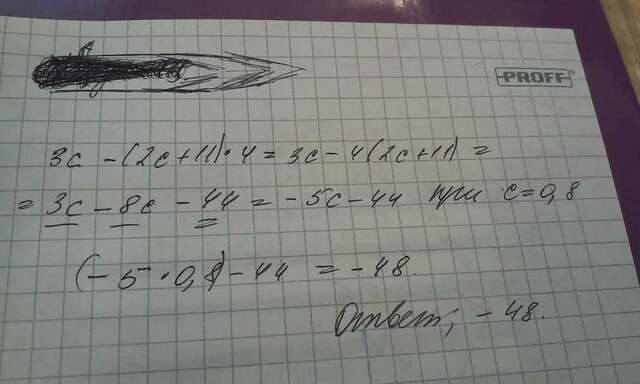 PROFF
3c - (2c+11)·4 = 3c - 4(2c+11) =
= 3c - 8c - 44 = -5c - 44 при c=0,8
(-5·0,8) - 44 = -48.
Ответ; -48.